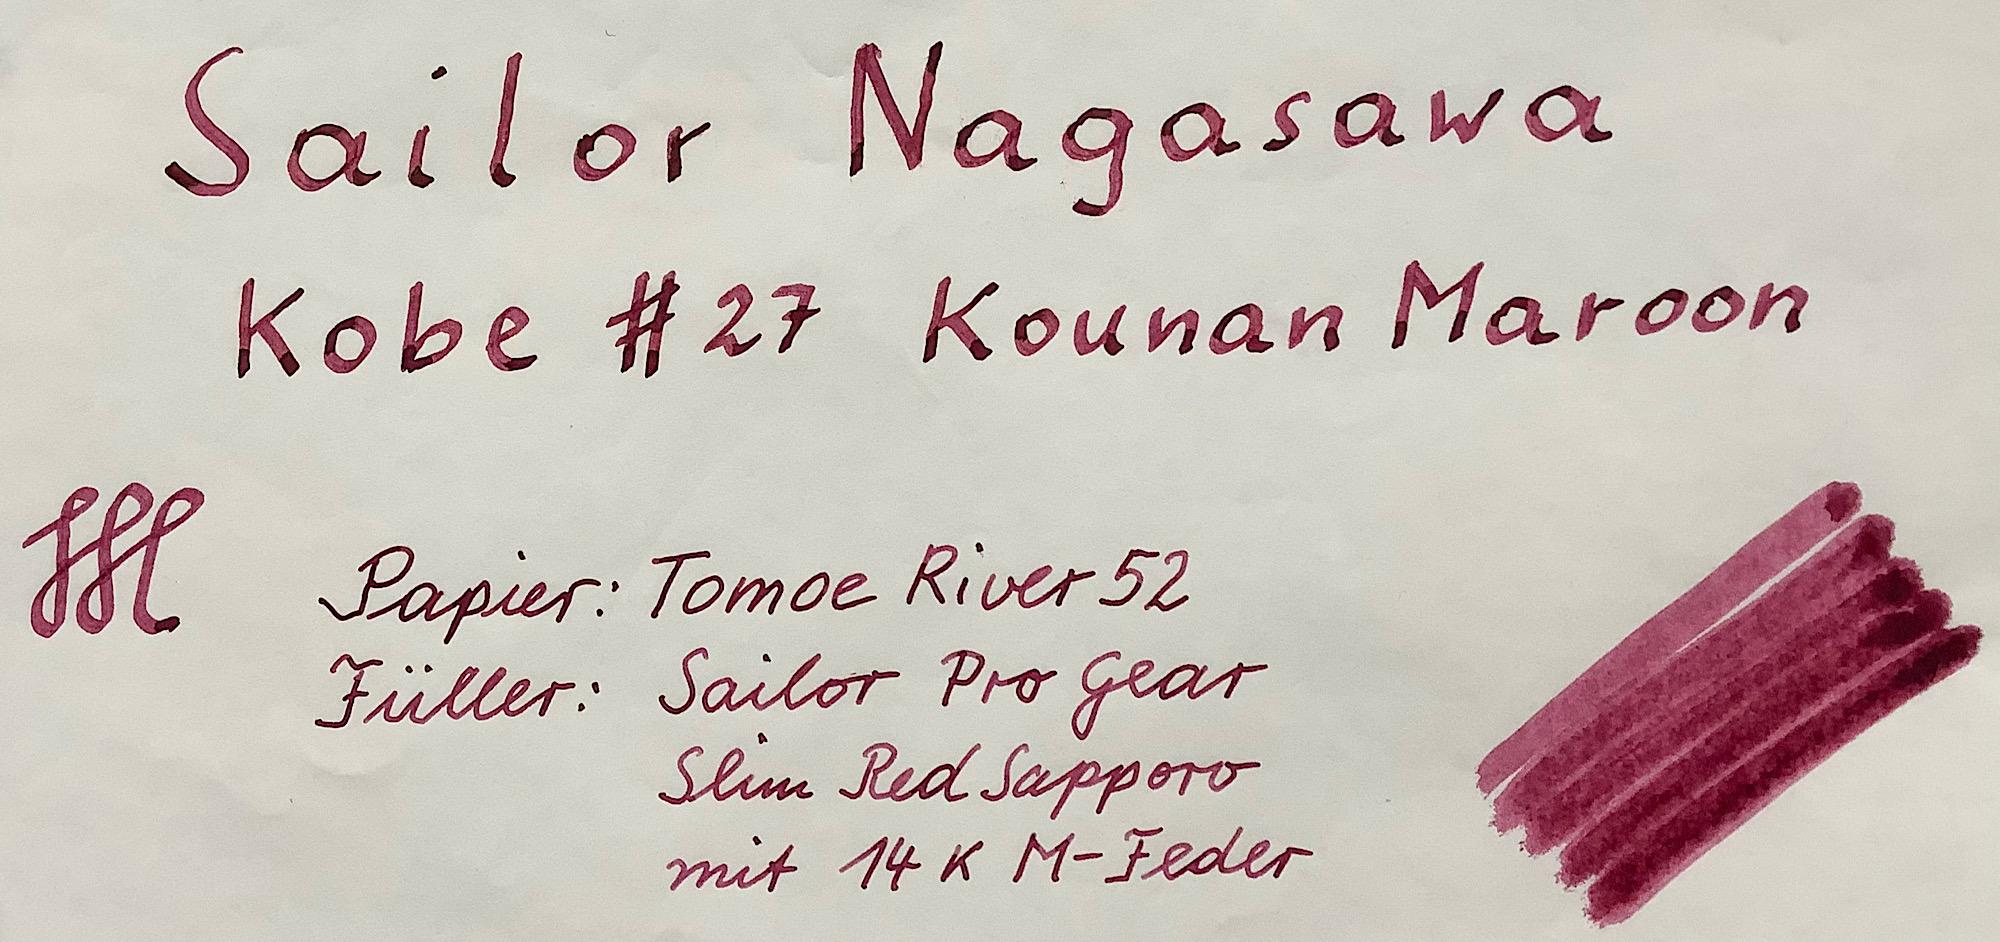 Sailor Nagasawa
Kobe #27 Kounan Maroon
Papier: Tomoe River 52
Füller: Sailor Pro Gear
Slim Red Sapporo
mit 14K M-Feder